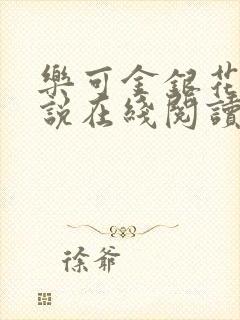 樂可金銀花
說在綫閱讀
徐爺